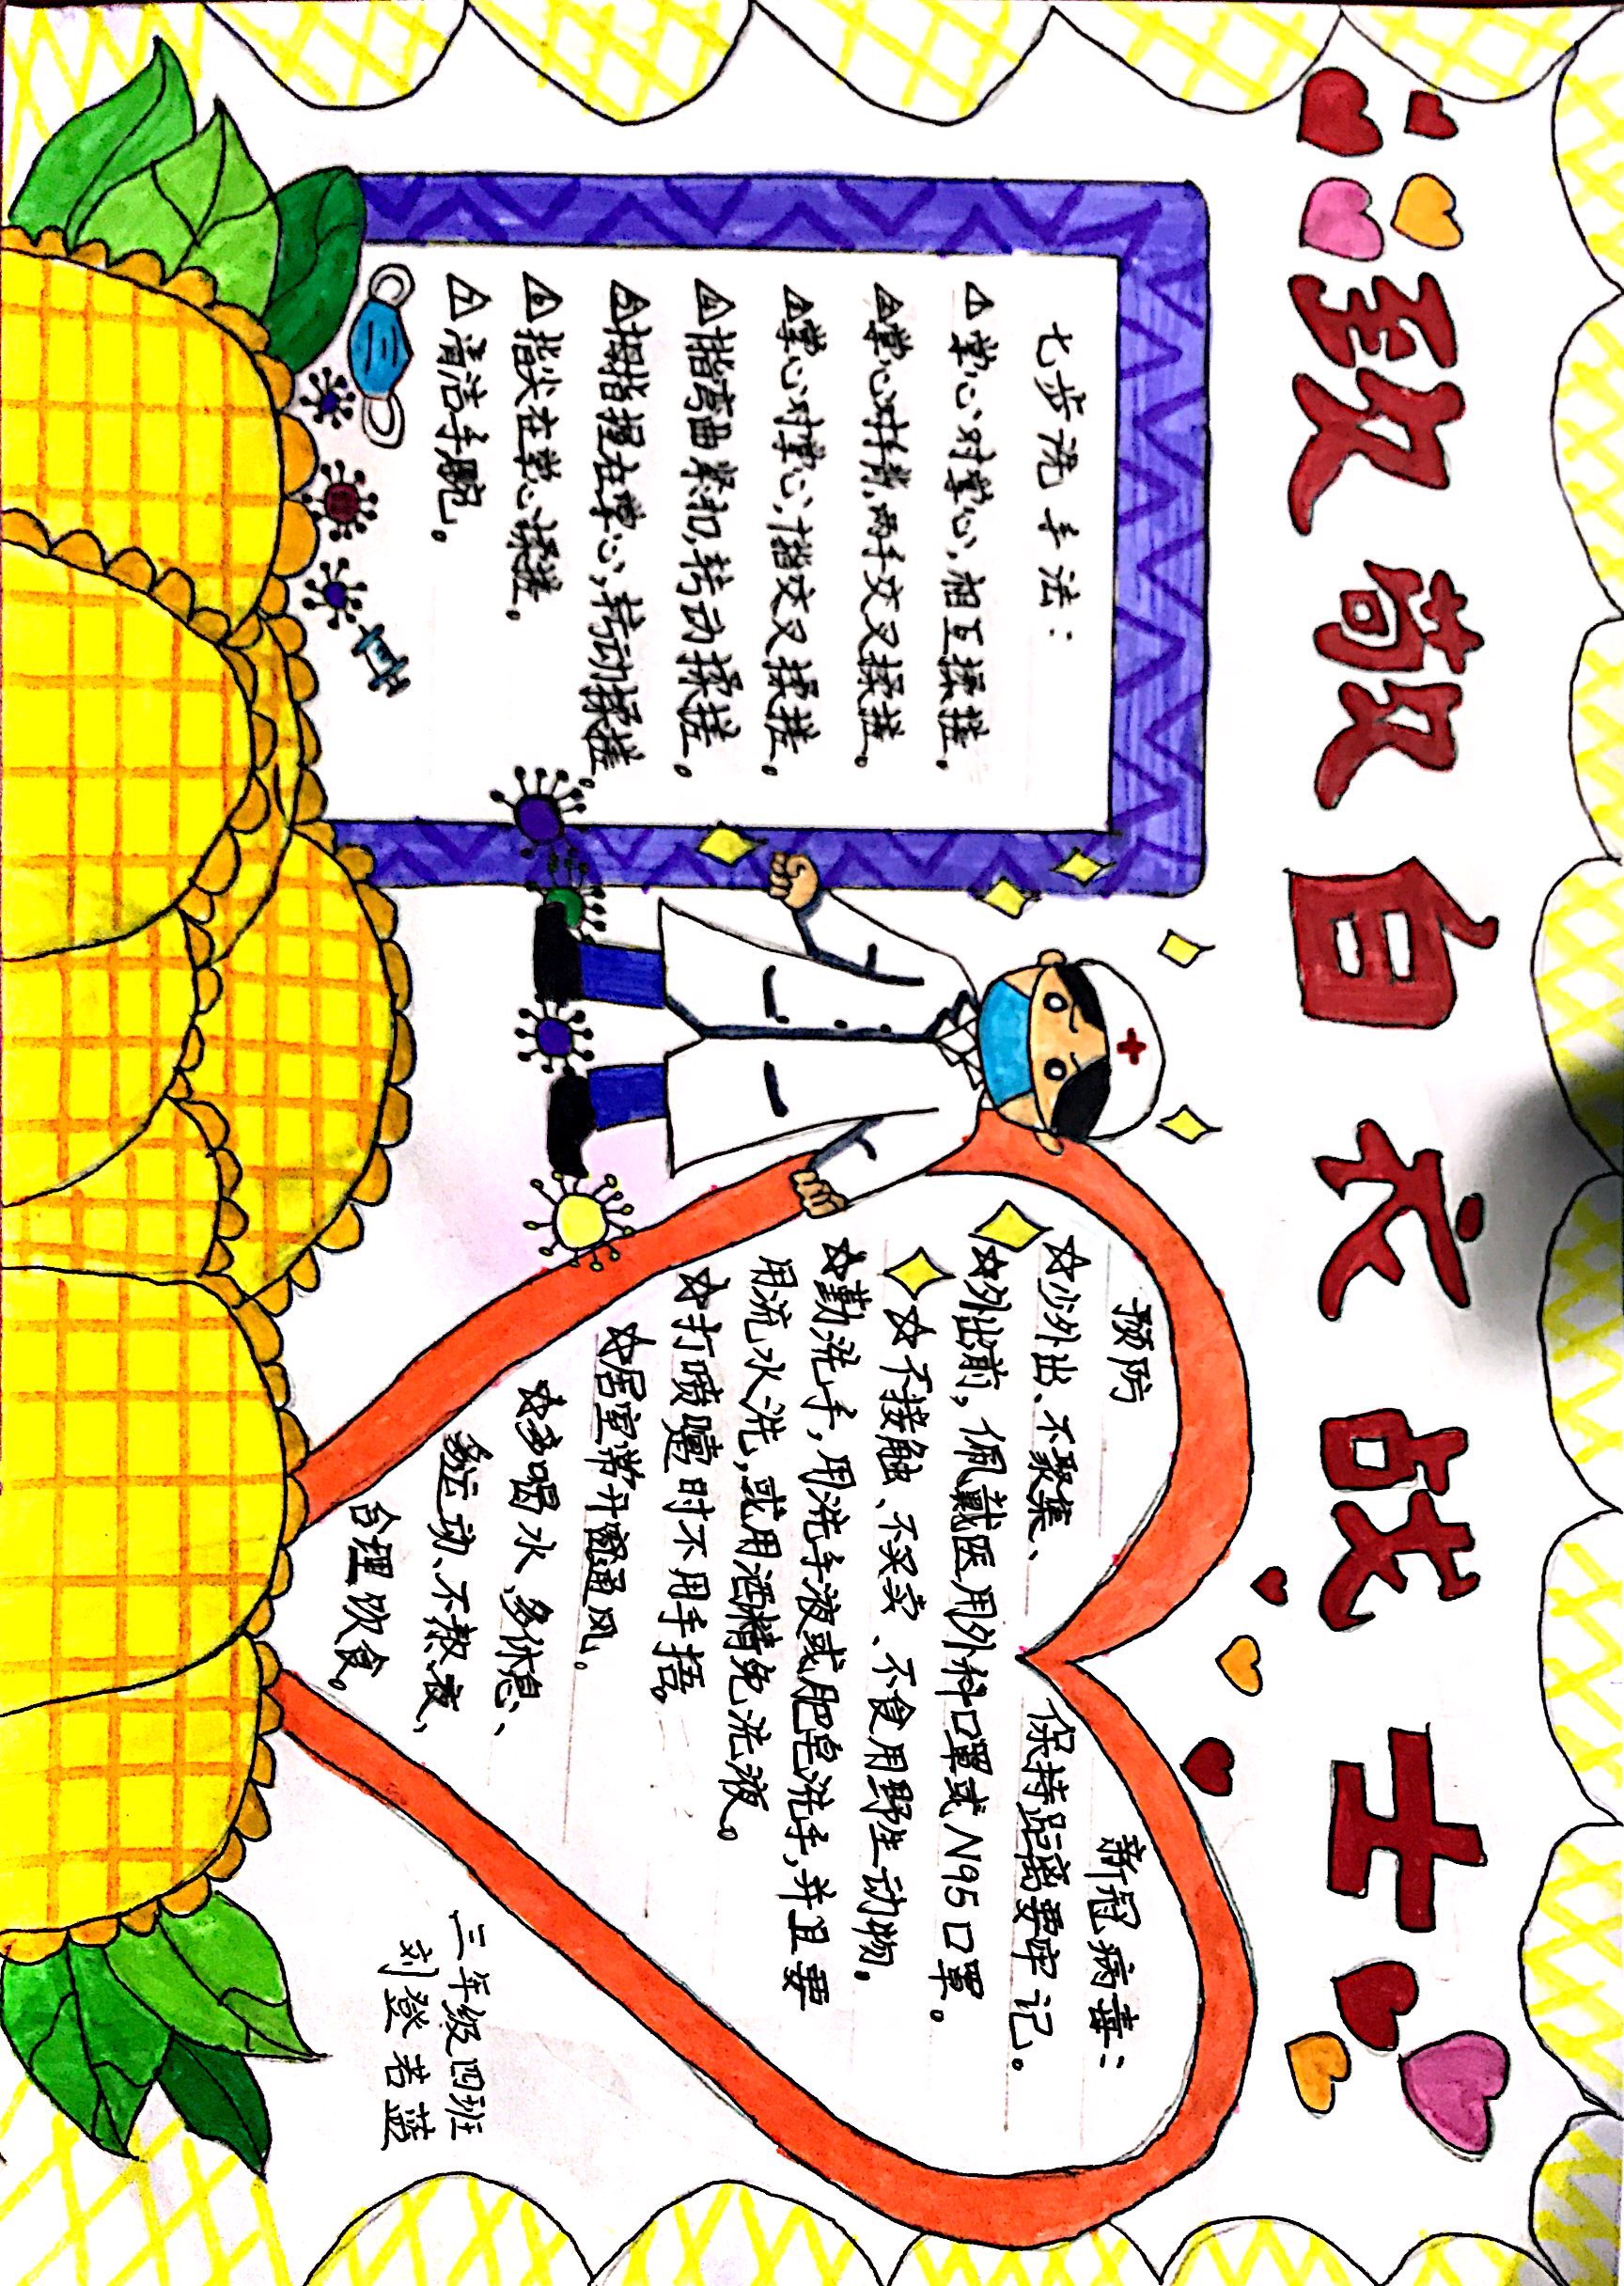 致敬白衣战士
七步洗手法：
△掌心对掌心,相互揉搓。
△掌心对手背,两手交叉揉搓。
△掌心对掌心,十指交叉揉搓。
△十指弯曲紧扣,转动揉搓。
△拇指握在掌心,转动揉搓。
△指尖在掌心揉搓。
△清洁手腕。
预防 新冠病毒：
☆少外出、不聚集、保持距离要牢记。
☆外出前,佩戴医用外科口罩或N95口罩。
☆不接触、不买卖、不食用野生动物。
☆勤洗手,用洗手液或肥皂洗手,并且要
用流水洗,或用酒精免洗液。
☆打喷嚏时不用手捂。
☆居室常开窗通风。
☆多喝水、多休息、
多运动、不熬夜、
合理饮食。
三年级四班
刘登若蓝